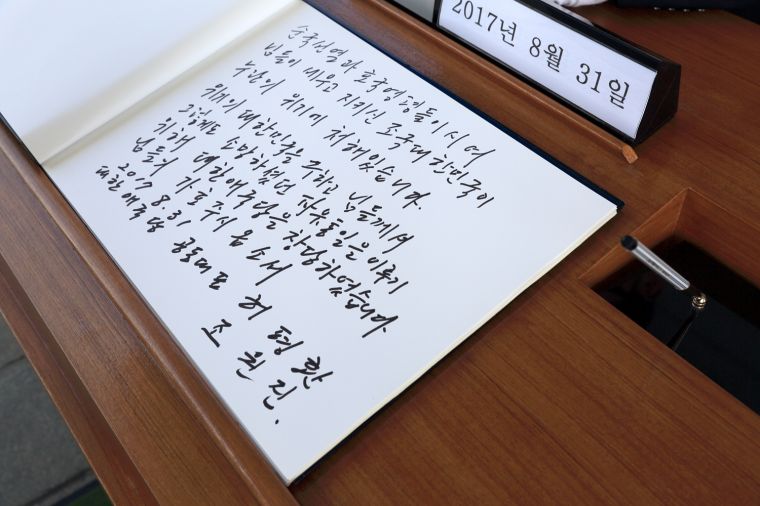 2017년 8월 31일
순국선열과 호국영령들이시여
님들이 세우고 지키신 조국 대한민국이
누란의 위기에 처해있습니다
위기의 대한민국을 구하고 님들께서
그렇게도 소망하셨던 자유통일을 이루기
위해 대한애국당을 창당하였습니다
님들의 가호주시옵소서
2017. 8. 31
대한애국당 공동대표 허평환
조원진.